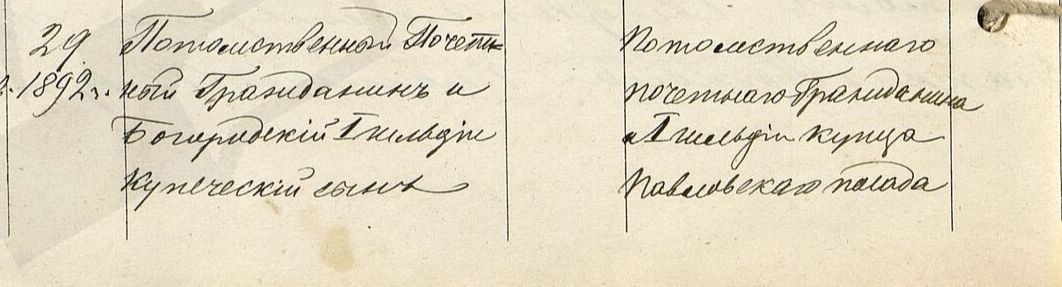 29
1892 г.
Потомственный Почет-
ный Гражданинъ и
Богородскій I гильдіи
Купеческій сынъ
Потомственнаго
почетнаго Гражданина
и I гильдіи купца
Павловскаго посада